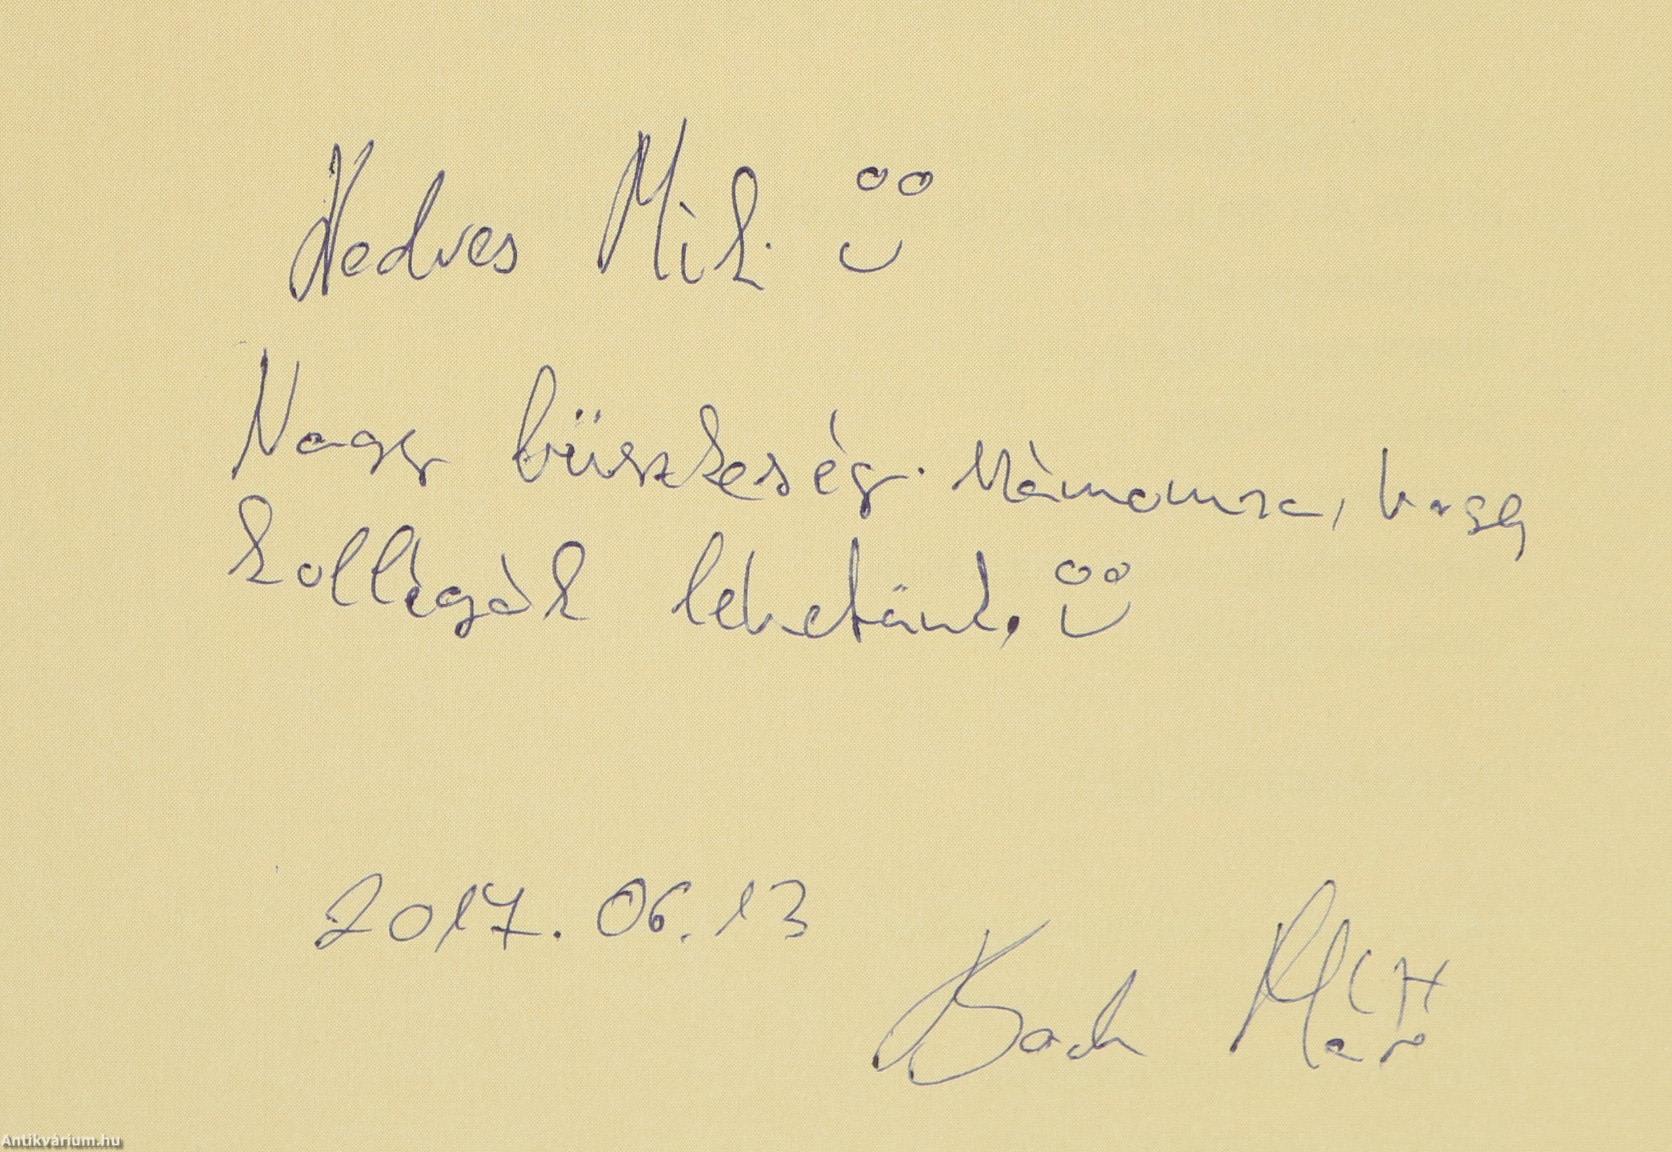 Kedves Mik.
Nagy büszkeség. Számomra, hogy
kollégák lehetünk.
2017. 06. 13
Bach Máté
Antikvárium.hu